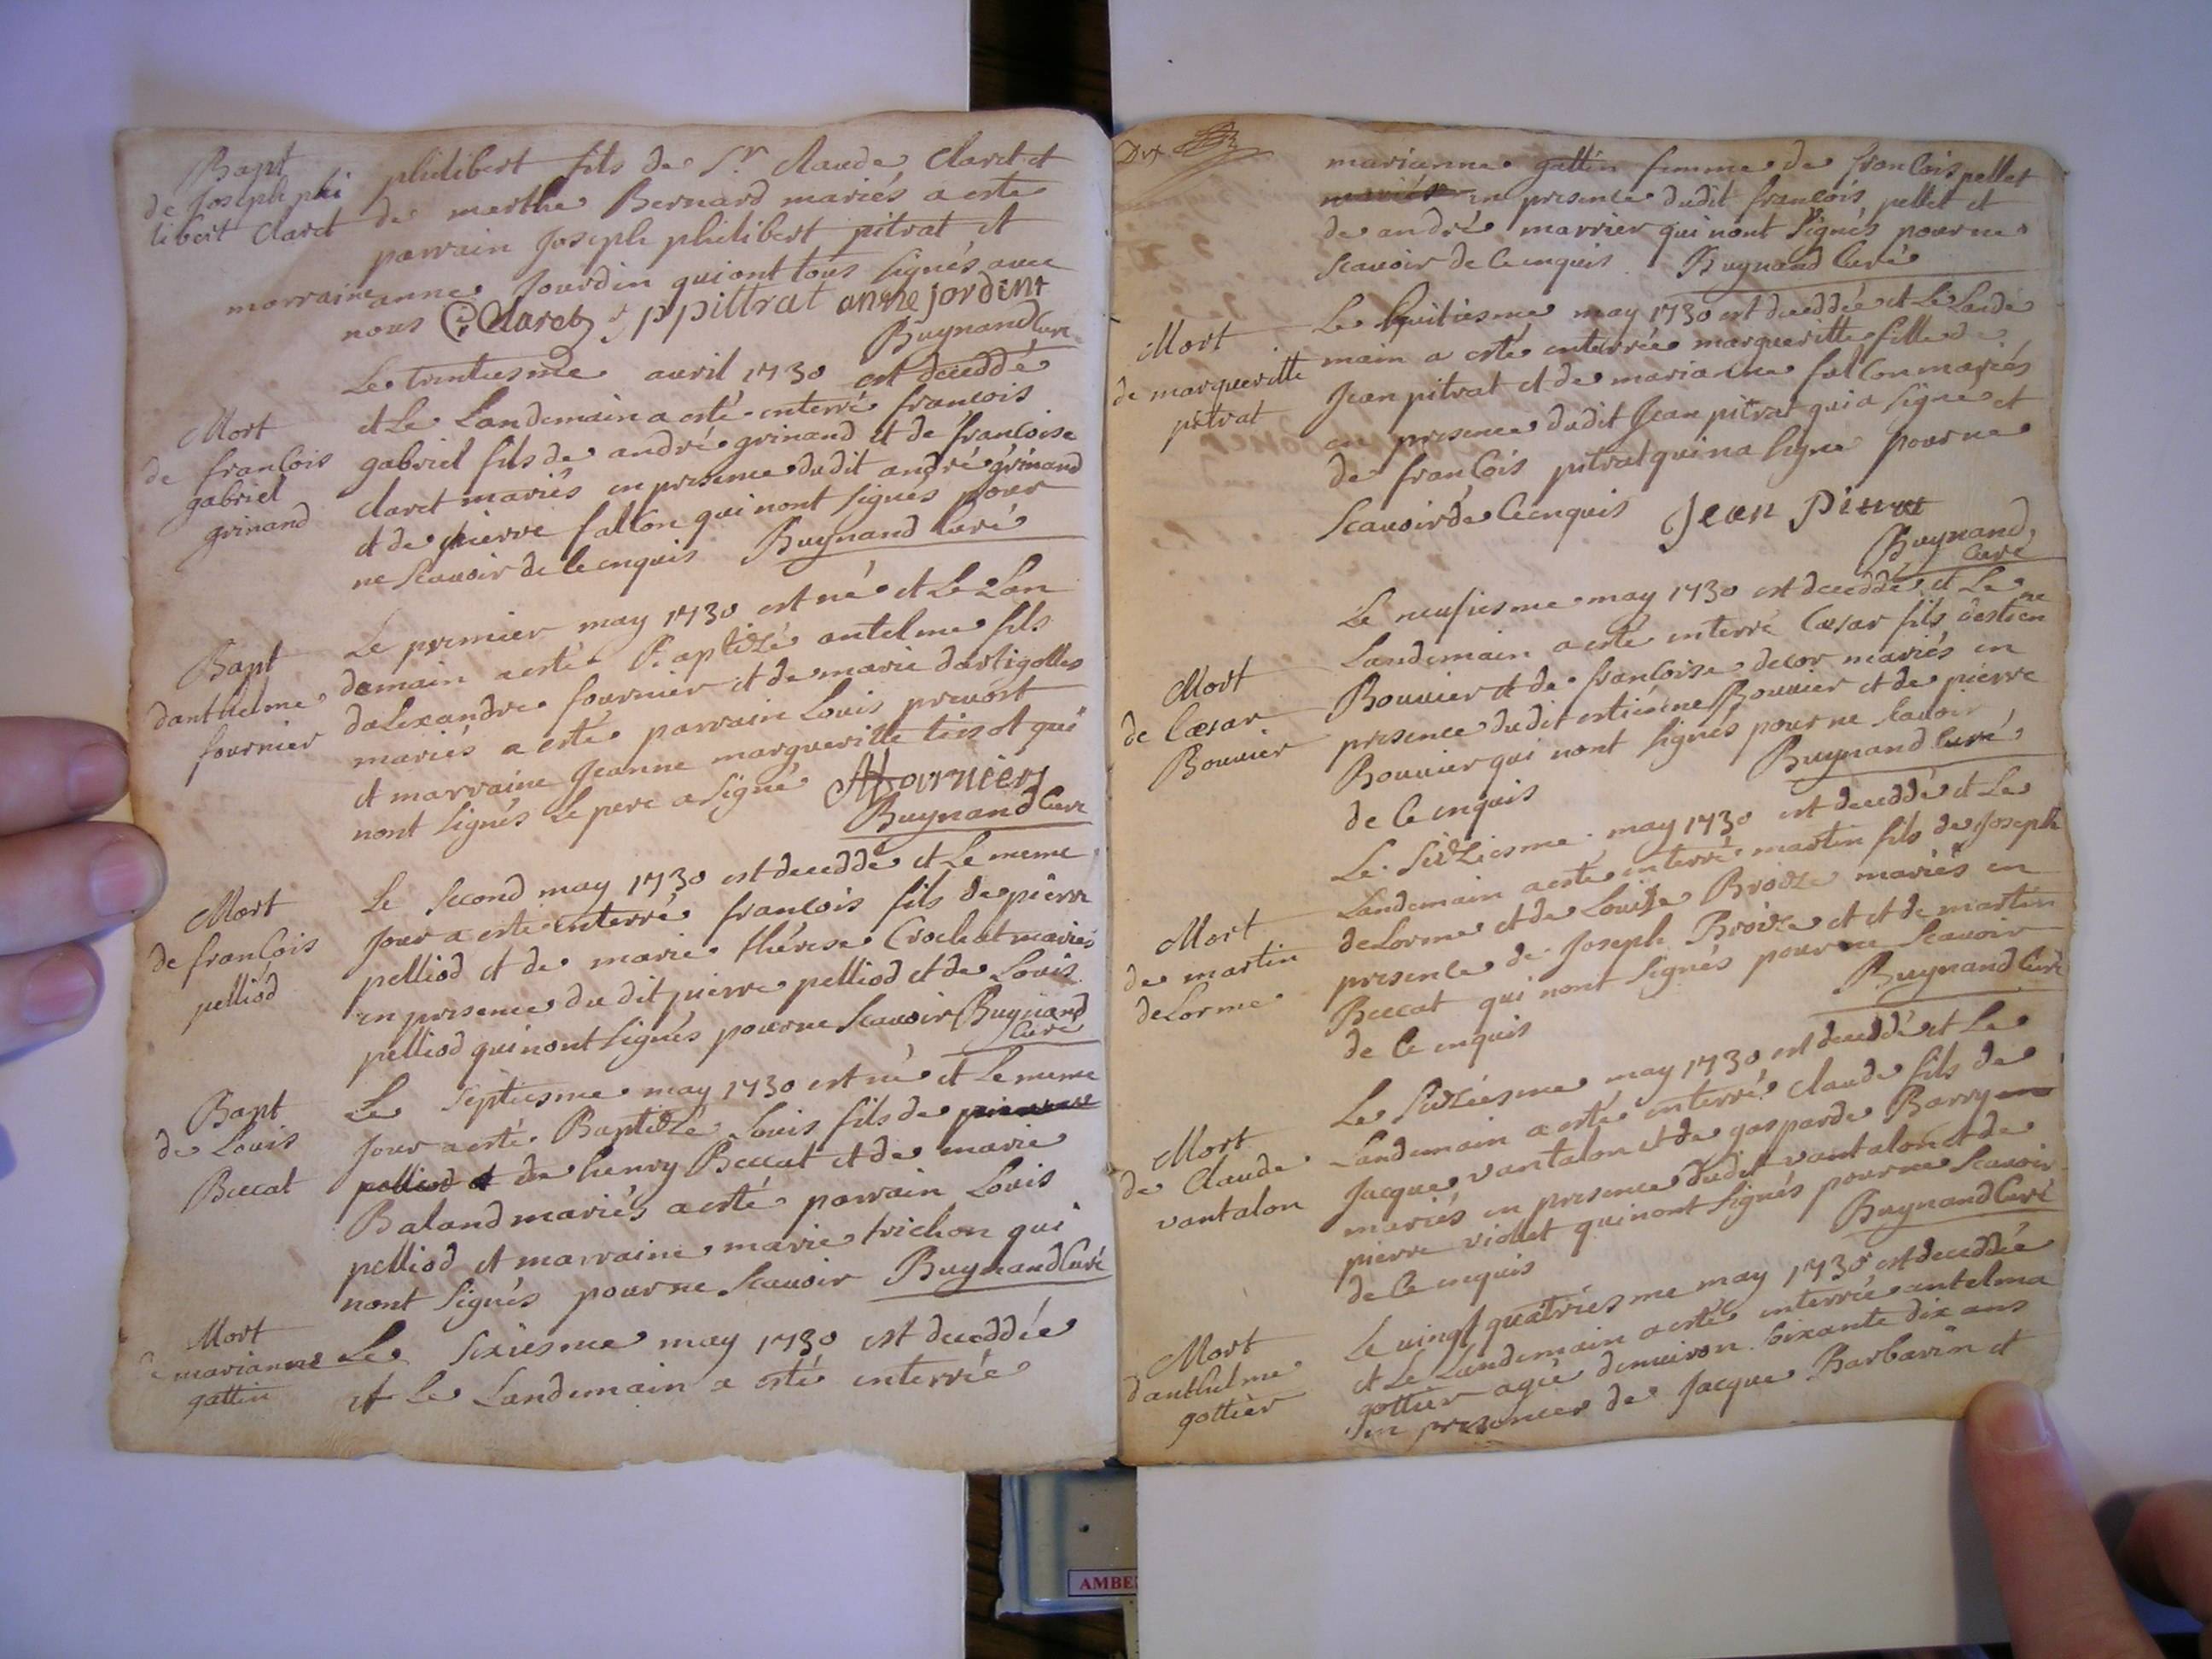 Bapt
de Joseph phi
libert Claret
philibert fils de Sr Claude Claret et
de marthe Bernard mariés a esté
parrain Joseph philibert pitrat et
marraine anne Jourdin qui ont tous signés avec
nous Claret ppittrat anne jordint
Buynand Curé
Mort
de francois
gabriel
grinand
Le trentiesme avril 1730 est deceddé
et Le Landemain a esté enterré francois
gabriel fils de andré grinand et de francoise
claret mariés en presence dudit andré grinand
et de pierre falcon qui nont signés pour
ne scavoir de ce enquis Buynand Curé
Bapt
danthelme
fournier
Le premier may 1730 est né et Le Lan
demain a esté Baptizé antelme fils
dalexandre fournier et de marie dartigolles
mariés a esté parrain Louis prevost
et marraine Jeanne margueritte tissot qui
nont signés Le pere a signé AFournier
Buynand Curé
Mort
de francois
pelliod
Le second may 1730 est deceddé et Le meme
Jour a esté enterré francois fils de pierre
pelliod et de marie thérese Crochat mariés
en presence du dit pierre pelliod et de Louis
pelliod qui nont signés pour ne scavoir Buynand
Curé
Bapt
de Louis
Beccat
Le septiesme may 1730 est né et Le meme
Jour a esté Baptizé Louis fils de pierre
pelliod et de henry Beccat et de marie
Baland mariés a esté parrain Louis
pelliod et marraine marie trichon qui
nont signés pour ne scavoir Buynand Curé
Mort
de marianne
gattin
Le sixiesme may 1730 est deceddée
et Le Landemain a esté enterrée
Dix
marianne gattin femme de francois pellet
mariés en presence dudit francois pellet et
de andré marrier qui nont signés pour ne
scavoir de ce enquis Buynand Curé
Mort
de margueritte
pitrat
Le huitiesme may 1730 est deceddée et Le Lande
main a esté enterrée margueritte fille de
Jean pitrat et de marianne falcon mariés
en presence dudit Jean pitrat qui a signe et
de francois pitrat qui na signe pour ne
scavoir de ce enquis Jean Pitrat
Buynand
Curé
Mort
de Cæsar
Bouvier
Le neufiesme may 1730 est deceddé et Le
Landemain a esté enterré Cæsar fils destienne
Bouvier et de francoise decor mariés en
presence dudit estienne Bouvier et de pierre
Bouvier qui nont signés pour ne scavoir
de ce enquis Buynand Curé
Mort
de martin
deLorme
Le seiziesme may 1730 est deceddé et Le
Landemain a esté enterré martin fils de Joseph
deLorme et de Louise Broize mariés en
presence de Joseph Broize et et de martin
Beccat qui nont signés pour ne scavoir
de ce enquis Buynand Curé
Mort
de Claude
vantalon
Le seiziesme may 1730 est deceddé et Le
Landemain a esté enterré claude fils de
Jacque vantalon et de gasparde Barry en
mariés en presence dudit vantalon et de
pierre viollet qui nont signés pour ne scavoir
de ce enquis Buynand Curé
Mort
danthelme
gottier
Le vingt quatriesme may 1730 est deceddée
et Le Landemain a esté enterrée antelma
gottier agée denviron soixante dix ans
en presence de Jacque Barbarin et
AMBE